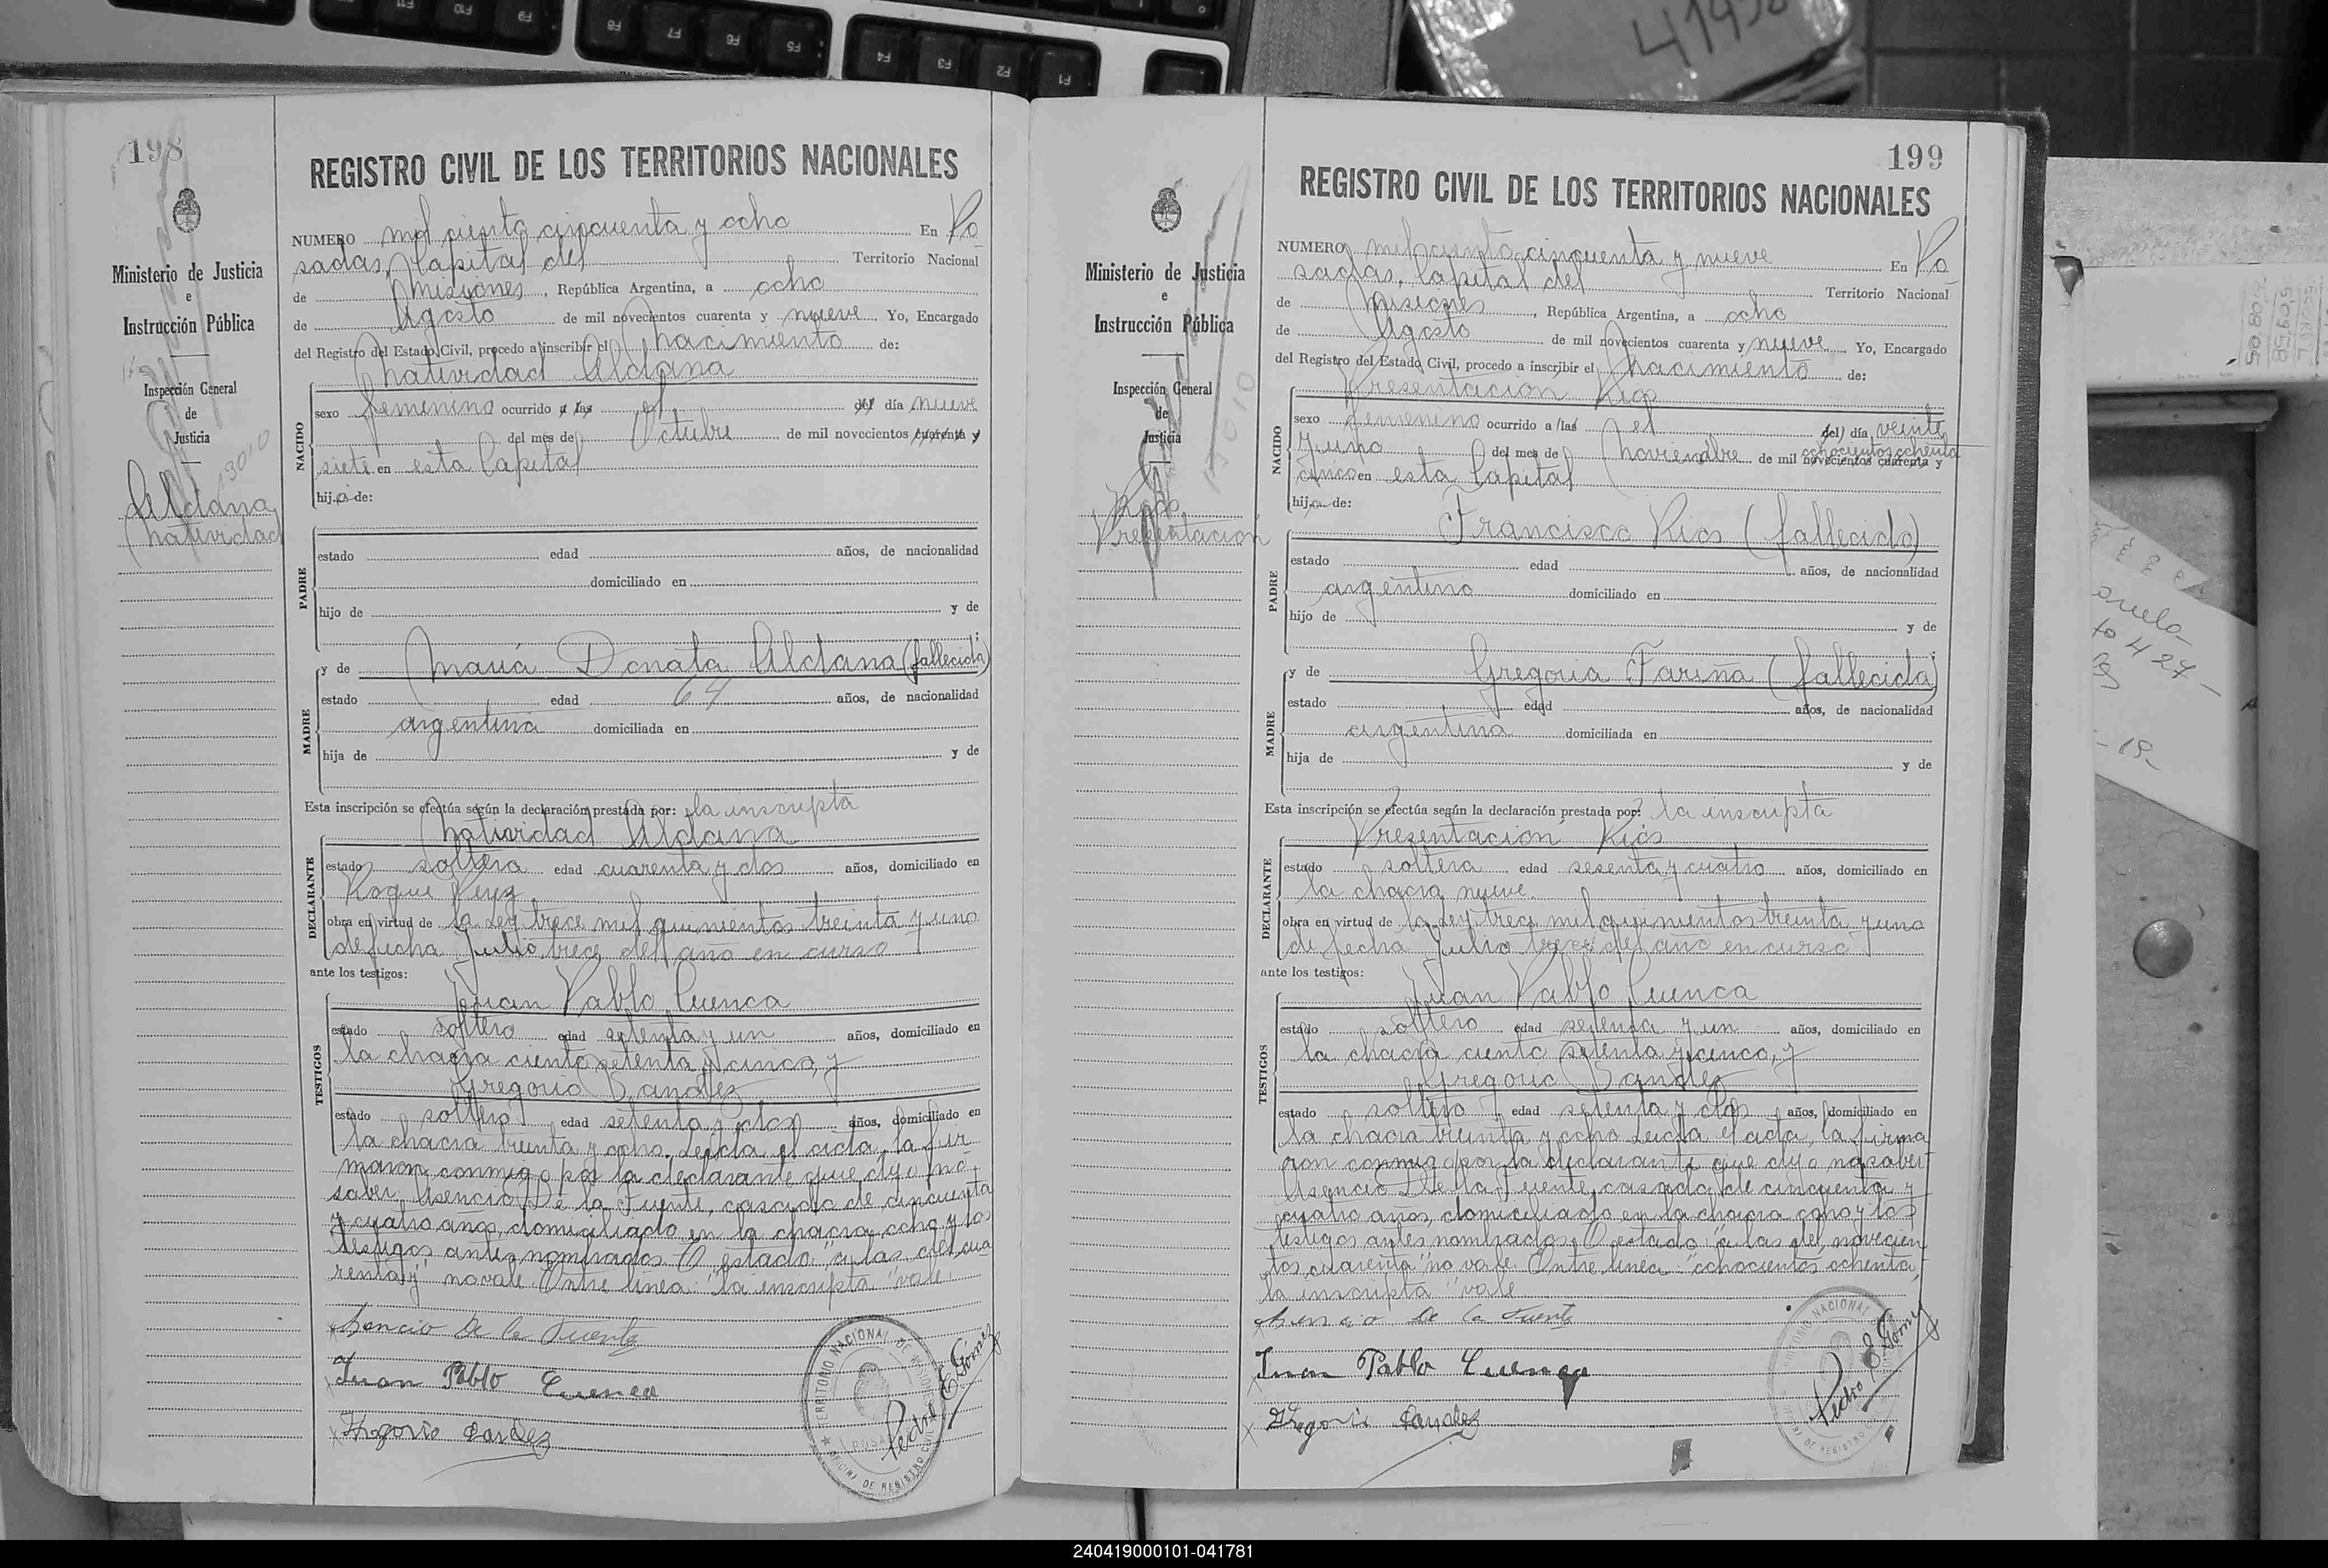 198
REGISTRO CIVIL DE LOS TERRITORIOS NACIONALES
Ministerio de Justicia
e
Instrucción Pública
Inspección General
de
Justicia
13010
Aldana
Natividad
NUMERO mil ciento cincuenta y ocho En Po
sadas, Capital del Territorio Nacional
de Misiones, República Argentina, a ocho
de Agosto de mil novecientos cuarenta y nueve Yo, Encargado
del Registro del Estado Civil, procedo a inscribir el nacimiento de:
Natividad Aldana
NACIDO
sexo femenino ocurrido a las el del día nueve
del mes de Octubre de mil novecientos cuarenta y
siete en esta Capital
hija de:
PADRE
estado edad años, de nacionalidad
domiciliado en
hijo de y de
MADRE
y de María Donata Aldana (fallecida)
estado edad 64 años, de nacionalidad
argentina domiciliada en
hija de y de
Esta inscripción se efectúa según la declaración prestada por: la inscripta
DECLARANTE
Natividad Aldana
estado soltera edad cuarenta y dos años, domiciliado en
Roque
obra en virtud de la Ley trece mil quinientos treinta y uno
de fecha Julio trece del año en curso
ante los testigos:
TESTIGOS
Juan Pablo Cuenca
estado soltero edad setenta y un años, domiciliado en
la chacra ciento setenta y cinco, y
Gregorio Bandez
estado soltero edad setenta y dos años, domiciliado en
la chacra treinta y ocho. Leída el acta, la fir
maron conmigo por la declarante que dijo no
saber, Asencio De la Fuente, casado de cincuenta
y cuatro años, domiciliado en la chacra ocho y los
testigos antes nombrados. O estado: "a las, del, cua
renta y" no vale. Entre linea: "la inscripta" vale.
Asencio De la Fuente
Juan Pablo Cuenca
Gregorio Bandez
TERRITORIO NACIONAL DE MISIONES
POSADAS
OFICINA DE REGISTRO CIVIL
Pedro E. Gómez
199
REGISTRO CIVIL DE LOS TERRITORIOS NACIONALES
Ministerio de Justicia
e
Instrucción Pública
Inspección General
de
Justicia
13010
Ríos
Presentación
NUMERO mil ciento cincuenta y nueve En Po
sadas, Capital del Territorio Nacional
de Misiones, República Argentina, a ocho
de Agosto de mil novecientos cuarenta y nueve Yo, Encargado
del Registro del Estado Civil, procedo a inscribir el nacimiento de:
Presentación Ríos
NACIDO
sexo femenino ocurrido a las el del día veinte
y uno del mes de Noviembre de mil novecientos cuarenta y
ochocientos ochenta
cinco en esta Capital
hija de:
PADRE
Francisco Rios (fallecido)
estado edad años, de nacionalidad
argentino domiciliado en
hijo de y de
MADRE
y de Gregoria Fariña (fallecida)
estado edad años, de nacionalidad
argentina domiciliada en
hija de y de
Esta inscripción se efectúa según la declaración prestada por: la inscripta
DECLARANTE
Presentación Ríos
estado soltera edad sesenta y cuatro años, domiciliado en
la chacra nueve
obra en virtud de la Ley trece mil quinientos treinta y uno
de fecha Julio trece del año en curso
ante los testigos:
TESTIGOS
Juan Pablo Cuenca
estado soltero edad setenta y un años, domiciliado en
la chacra ciento setenta y cinco, y
Gregorio Bandez
estado soltero edad setenta y dos años, domiciliado en
la chacra treinta y ocho. Leída el acta, la firma
ron conmigo por la declarante que dijo no saber
Asencio De la Fuente, casado, de cincuenta y
cuatro años, domiciliado en la chacra ocho y los
testigos antes nombrados. O estado: "a las, del, novecien
tos, cuarenta" no vale. Entre linea: "ochocientos ochenta,
la inscripta" vale
Asencio De la Fuente
Juan Pablo Cuenca
Gregorio Bandez
Pedro E. Gómez
240419000101-041781